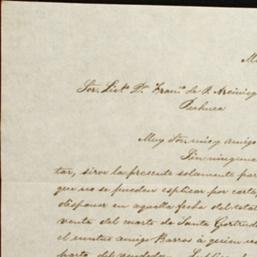 Me
Sor. Licdo. Dn. Franco. de P. Arcinieg
Pachuca
Muy Sor. mio y amigo
Sin ninguna
tar, sirve la presente solamente par
que no se pueden esplicar por carta,
disponer en aquella fecha del
venta del monte de Santa Gertrud
el amigo Barros á quien
parte del vendedor